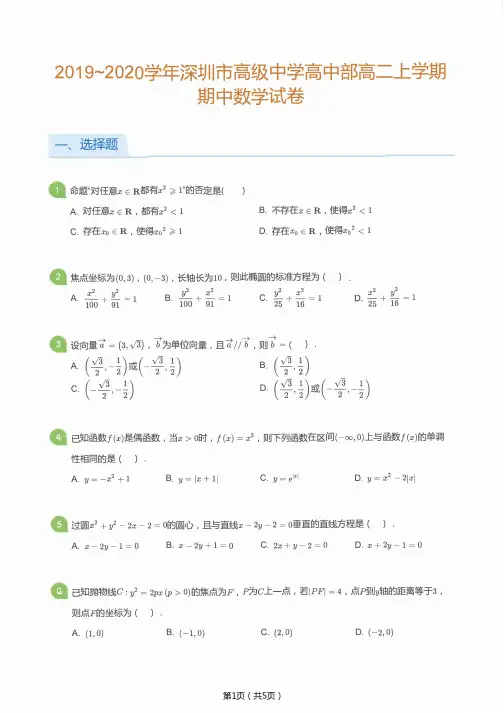 2019~2020学年深圳市高级中学高中部高二上学期
期中数学试卷
一、选择题
1 命题“对任意x∈R都有x²⩾1”的否定是( )
A. 对任意x∈R，都有x²<1 B. 不存在x∈R，使得x²<1
C. 存在x₀∈R，使得x₀²⩾1 D. 存在x₀∈R，使得x₀²<1
2 焦点坐标为(0,3)，(0,−3)，长轴长为10，则此椭圆的标准方程为（ ）.
A. x²/100 + y²/91 = 1 B. y²/100 + x²/91 = 1 C. y²/25 + x²/16 = 1 D. x²/25 + y²/16 = 1
3 设向量a⃗=(3,√3)，b⃗为单位向量，且a⃗//b⃗，则b⃗=（ ）.
A. (√3/2, −1/2)或(−√3/2, 1/2) B. (√3/2, 1/2)
C. (−√3/2, −1/2) D. (√3/2, 1/2)或(−√3/2, −1/2)
4 已知函数f(x)是偶函数，当x>0时，f(x)=x³，则下列函数在区间(−∞,0)上与函数f(x)的单调
性相同的是（ ）.
A. y=−x²+1 B. y=|x+1| C. y=e^|x| D. y=x²−2|x|
5 过圆x²+y²−2x−2=0的圆心，且与直线x−2y−2=0垂直的直线方程是（ ）.
A. x−2y−1=0 B. x−2y+1=0 C. 2x+y−2=0 D. x+2y−1=0
6 已知抛物线C:y²=2px(p>0)的焦点为F，P为C上一点，若|PF|=4，点P到y轴的距离等于3，
则点F的坐标为（ ）.
A. (1,0) B. (−1,0) C. (2,0) D. (−2,0)
第1页（共5页）